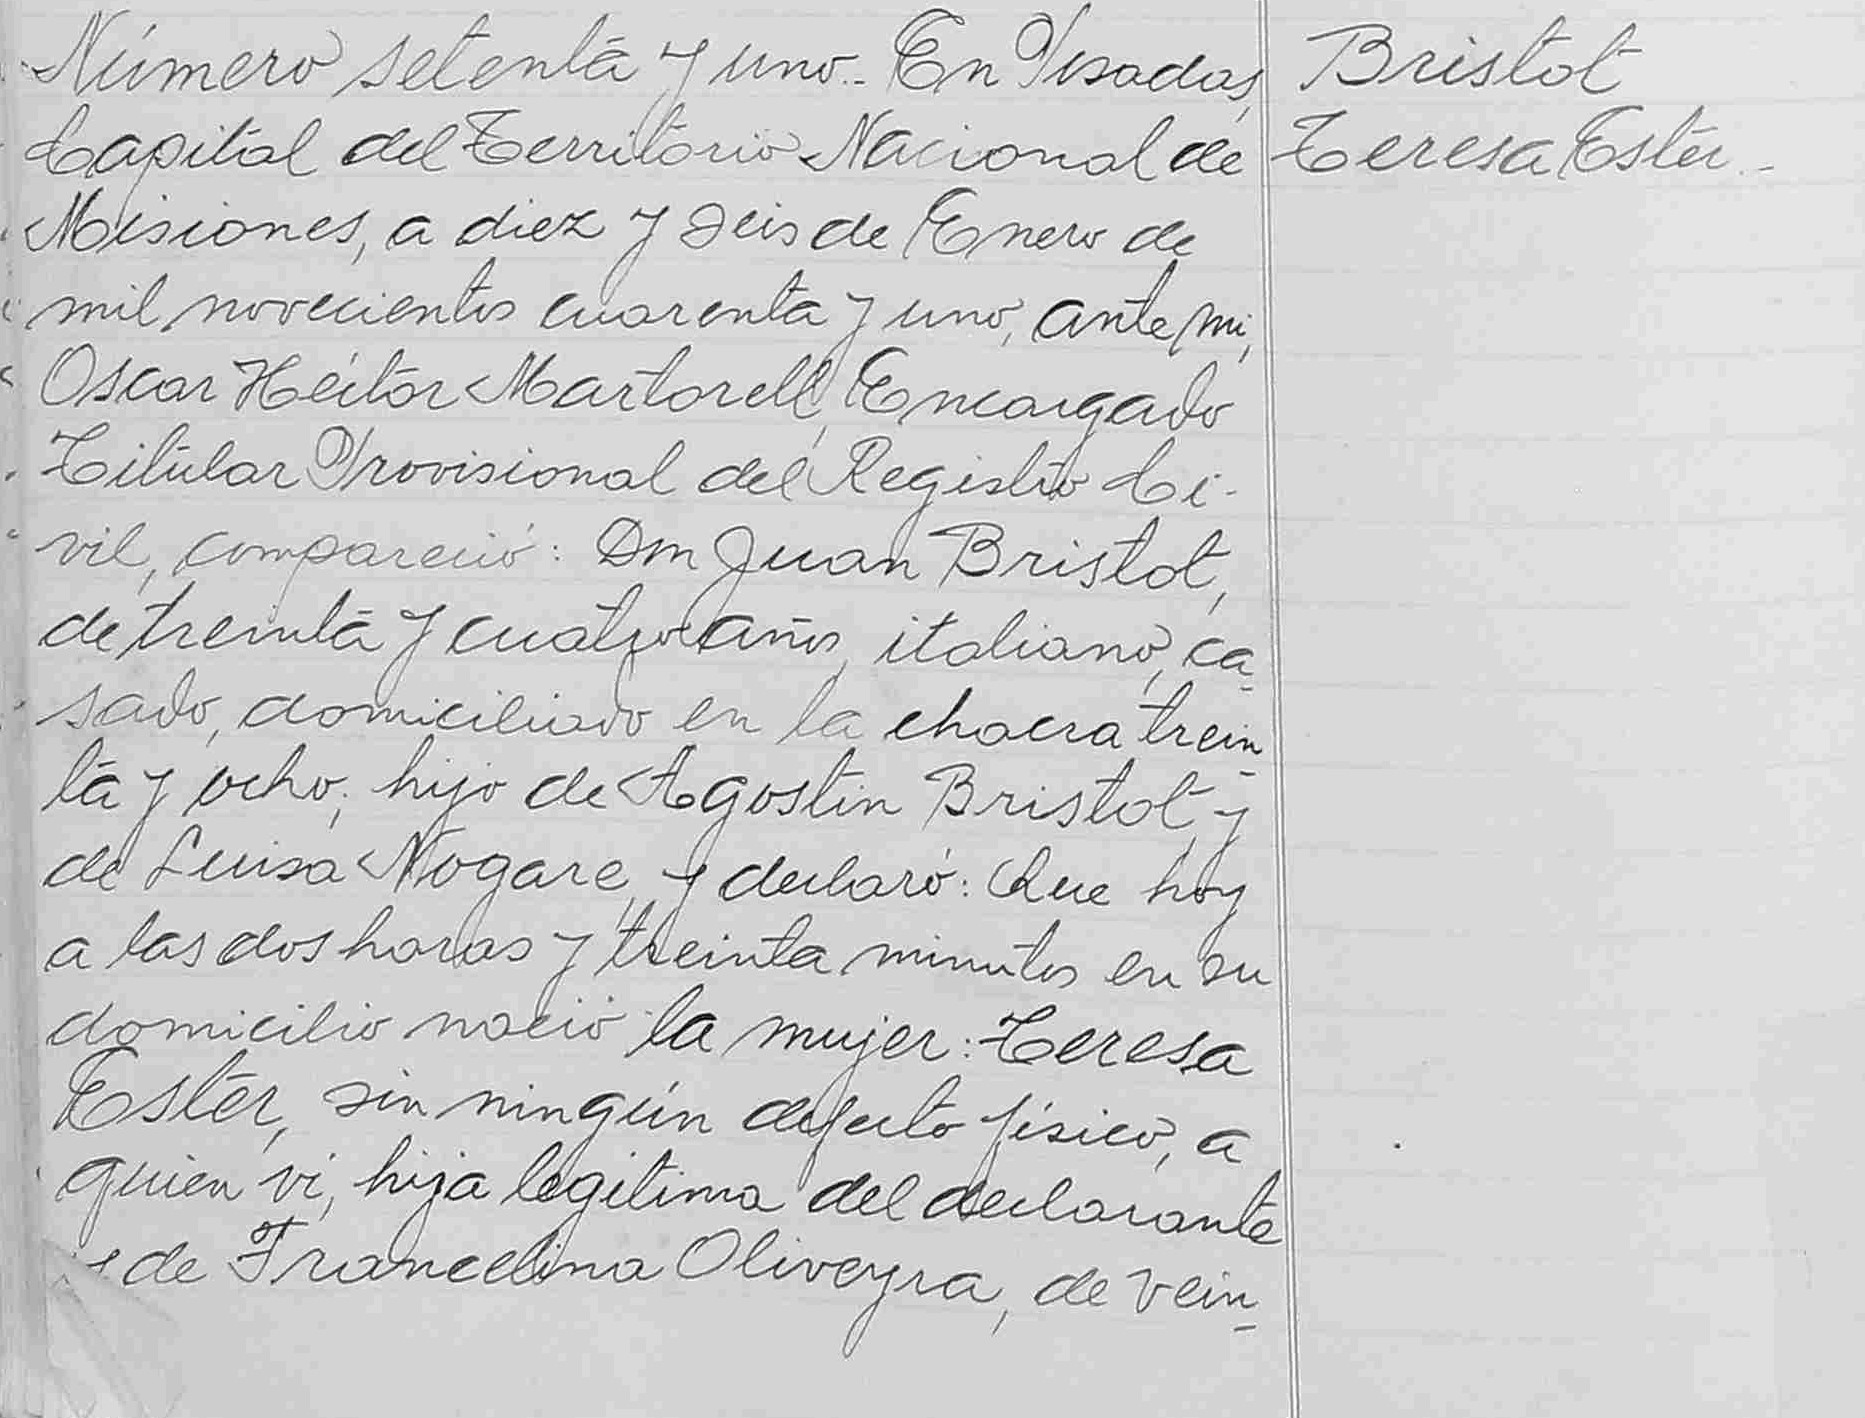 Número setenta y uno.. En Posadas,
Capital del Territorio Nacional de
Misiones, a diez y seis de Enero de
mil novecientos cuarenta y uno, ante mi,
Oscar Héctor Martorell, Encargado
Titular Provisional del Registro Ci-
vil, compareció: Don Juan Bristot,
de treinta y cuatro años, italiano, ca-
sado, domiciliado en la chacra trein-
ta y ocho, hijo de Agostin Bristot y
de Luisa Nogare, y declaró: Que hoy
a las dos horas y treinta minutos en su
domicilio nació la mujer: Teresa
Ester, sin ningún defecto físico, a
quien vi, hija legitima del declarante
y de Francelina Oliveyra, de vein-
Bristot
Teresa Ester..